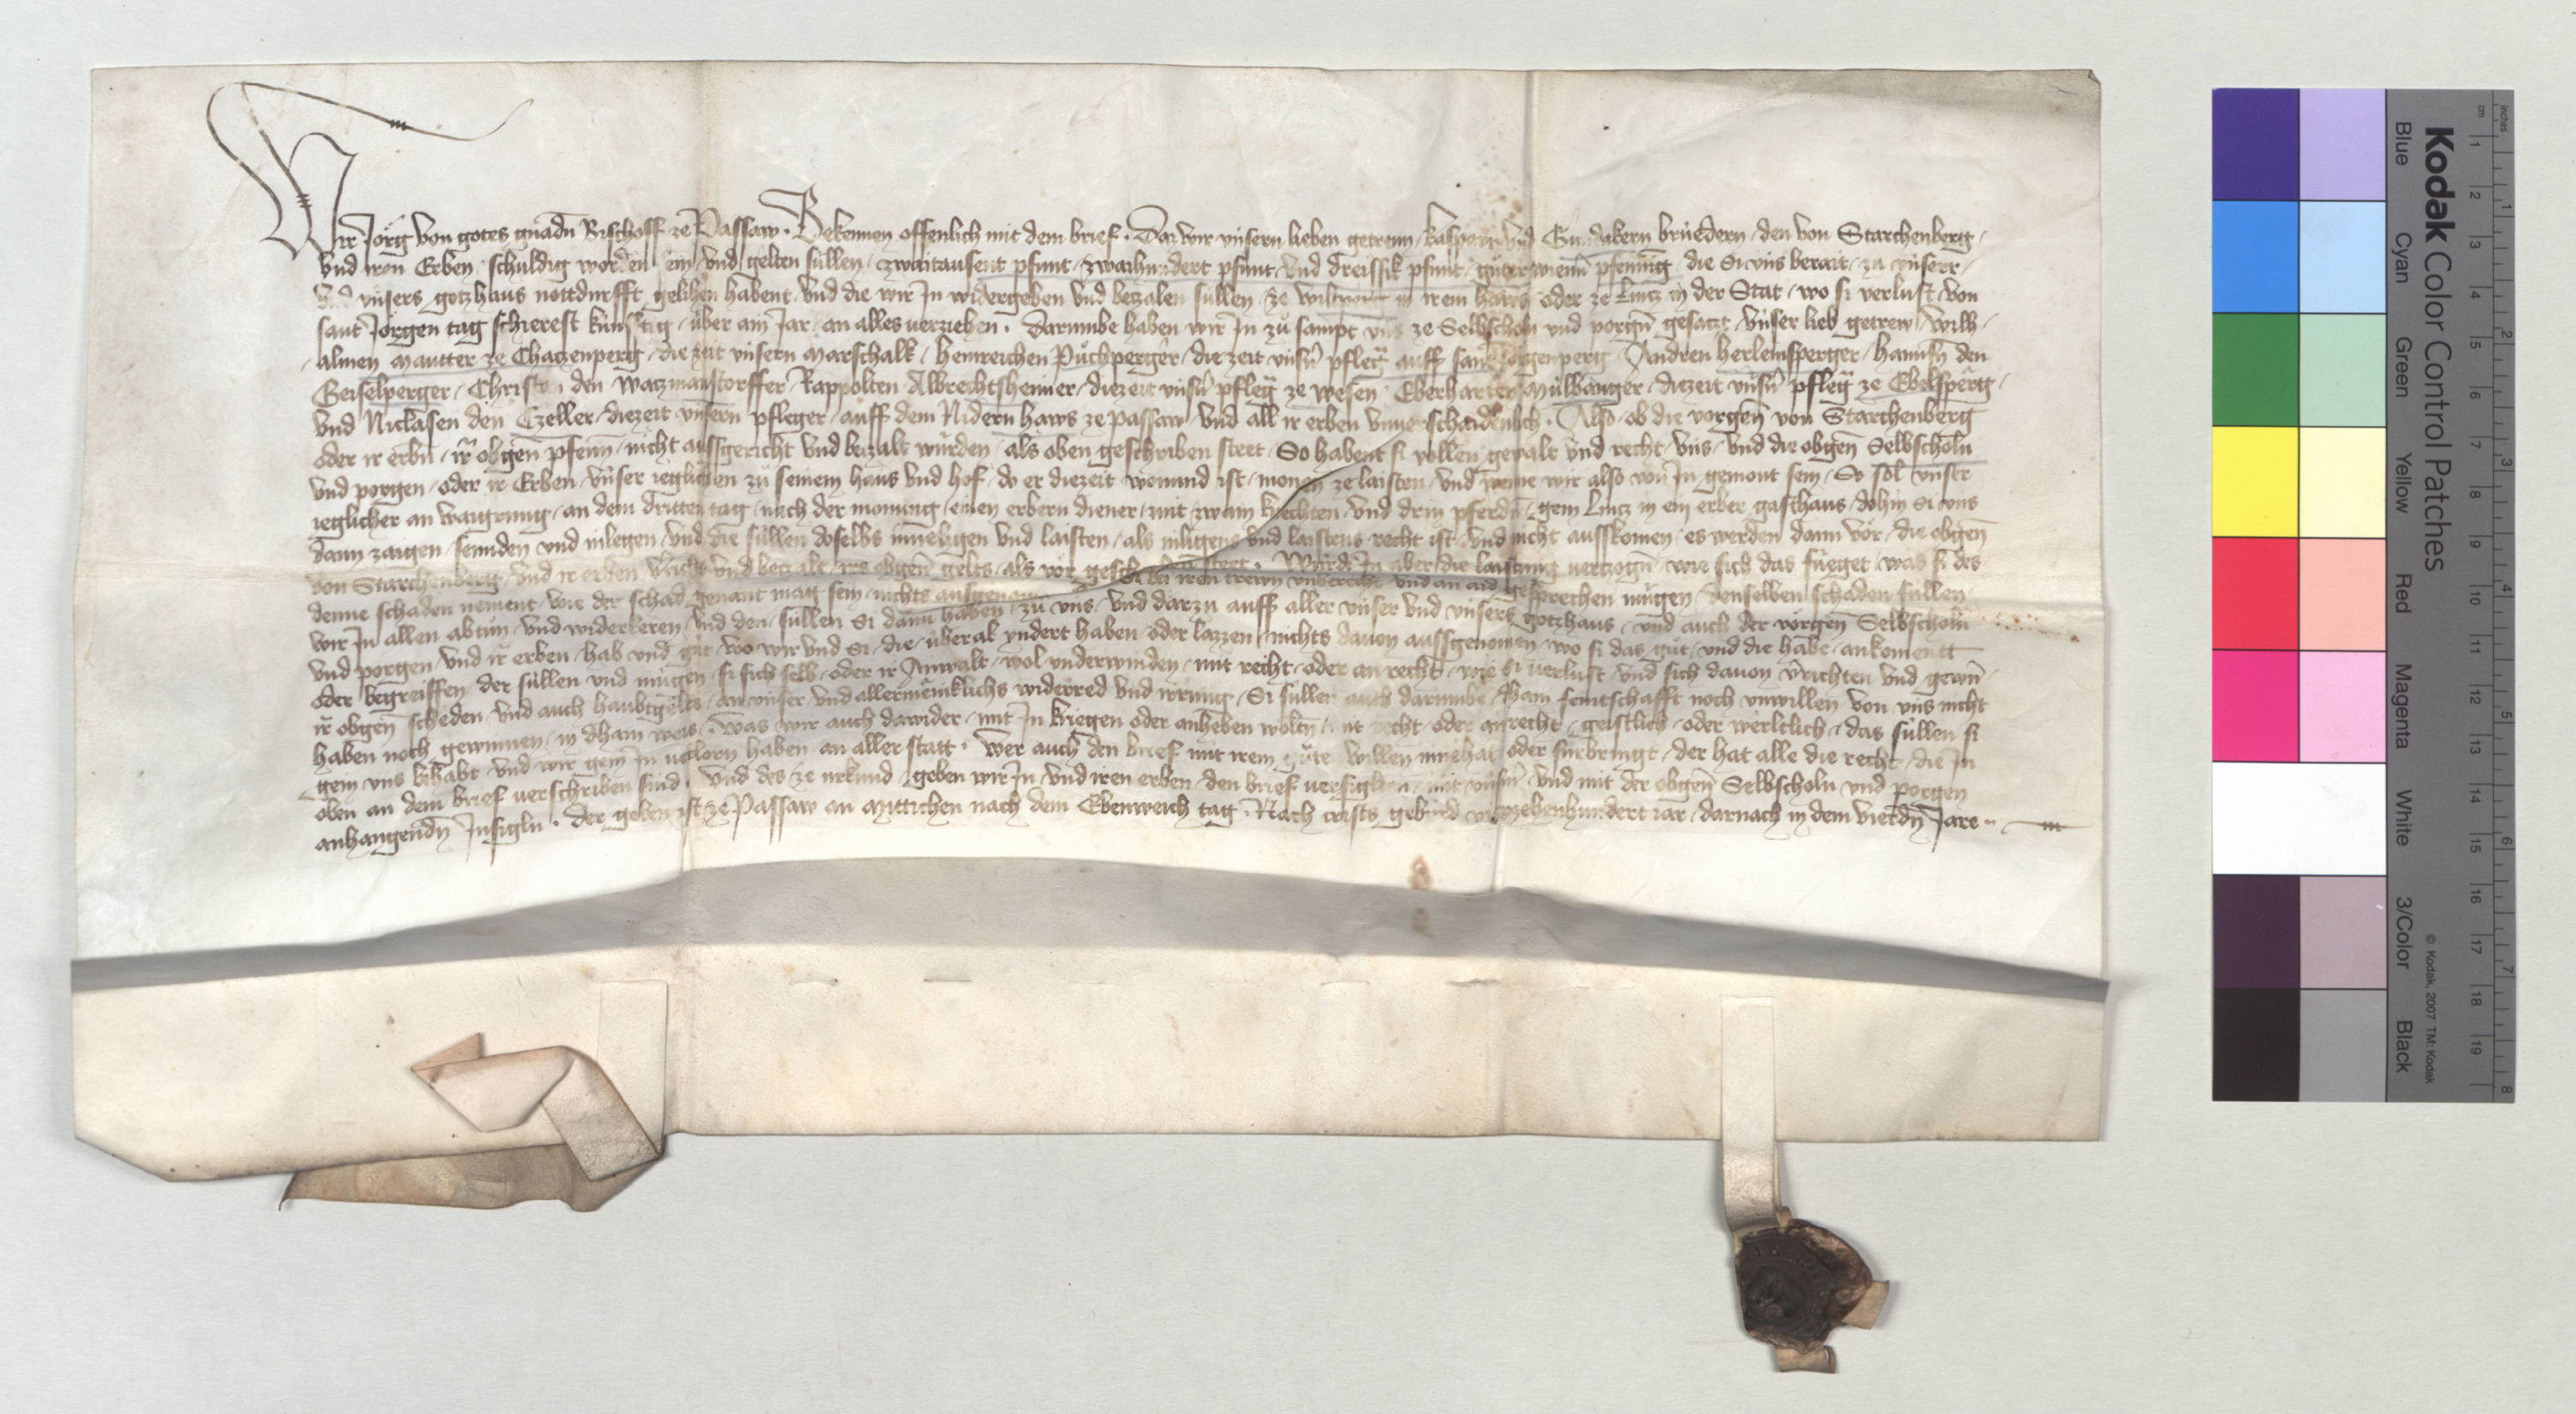 Wir Jörg von gotes gnadn̄ Bischoff ze Passaw · Bekennen offenlich mit dem brief · Daz wir vnsern lieben getrewn Kasparn vnd Gundakern brüdern den von Starchenberg
vnd iren Erben schuldig worden sein vnd gelten süllen zwaitausent pfunt zwaihundert pfunt vnd dreissik pfunt guter wienn̄ pfenning die si vns berait zu vnserr
vnd vnsers gotzhaus notdurfft gelihen habent vnd die wir In widergeben vnd bezalen süllen ze in irem haws oder ze Lincz in der Stat wo si verlust von
sant Jörgen tag schierest künftig über ain Jar an alles verziehen · Darumbe haben wir In zu sampt vns ze Selbscholn vnd porgn̄ gesaczt vnser lieb getrew Wilh
almen Mautter ze Chaczenperg die zeit vnsern Marschalk Heinreichen Püchperger die zeit vnsn̄ pfleḡ auff sand Jörgenperg Andren herleinsperger Hannsn̄ den
Geiselperger Christan den Waczmanstorffer Rappolten Albrechtshemer diezeit vnsn̄ pfleḡ ze Wesen Eberharten Mülbanger diezeit vnsn̄ pfleḡ ze Ebelsperg
vnd Niclasen den Czeller diezeit vnsern pfleger auff dem Nidern haws ze Passaw vnd all ir erben vnuerschaidenlich · Also ob die vorgen̄ von Starchenberg
oder ir erbn̄ ir̄ obgen̄ pfenn̄ nicht aussgericht vnd bezalt würden als oben geschriben steet So habent si vollen gewalt vnd recht vns vnd die obgen̄ Selbscholn
vnd porgen oder ir Erben vnser ieglichen zu seinem haus vnd hof do er diezeit wonund ist monen ze laisten vnd wenne wir also von In gemont sein So sol vnser
ieglicher an waigrung an dem dritten tag nach der monung einen erbern diener mit zwain knechten vnd drin pferdn̄ gem Lincz in ein erber gasthaus dohin si vns
dann zaigen sennden vnd inlegen vnd die süllen doselbs inneligen vnd laisten als inligens vnd laistens recht ist vnd nicht auszkomen es werden dann vor die obgen̄
von Starchenberg vnd ir erben vericht vnd bezalt irs obgen̄ gelts als vor geschriben steet · Würd In aber die laistung verczogn̄ wie sich das füeget was si des
denne schaden nement wie der schad genant mag sein nichts ausgenomen bei iren trewn vnberecht vnd an aid gesprechen mügen denselben schaden süllen
wir In allen abtun vnd widerkeren vnd den süllen si dann haben zu vns vnd darzu auff aller vnser vnd vnsers gotzhaus vnd auch der vorgen̄ Selbscholn
vnd porgen vnd ir̄ erben hab vnd gut wo wir vnd si die überal yndert haben oder lazzen nichts dauon aussgenomen wo si das gut vnd die habe ankoment
oder begreiffen der süllen vnd mügen si sich selb oder ir Anwalt wol vnderwinden mit recht oder an recht wie si verlust vnd sich dauon v̄richten vnd gewn̄
ir̄ obgen̄ scheden vnd auch haubtgelts an vnser vnd allermeniklichs widerred vnd irrung Si süllen auch darumbe kain feintschafft noch vnwillen von vns nicht
haben noch gewinnen in dhain weis · Was wir auch dawider mit In kriegen oder anheben woltn̄ mit recht oder anrecht geistlich oder werltlich das süllen si
gein vns behabt vnd wir gein In verlorn haben an aller statt · Wer auch den brief mit irem gute willen innehat oder furbringt der hat alle die recht die In
oben an dem brief verschriben sind · Vnd des ze urkund geben wir In vnd iren erben den brief versigelten mit vnsn̄ vnd mit der obgen̄ Selbscholn vnd porgen
anhangendn̄ Insigln · Der geben ist ze Passaw an Mittichen nach dem Ebenweich tag · Nach crists geburd vierzehenhundert iar darnach in dem vierdn̄ Jare
Kodak Color Control Patches
© Kodak, 2007 TM: Kodak
Blue Cyan Green Yellow Red Magenta White 3/Color Black
cm 1 2 3 4 5 6 7 8 9 10 11 12 13 14 15 16 17 18 19
inches 1 2 3 4 5 6 7 8